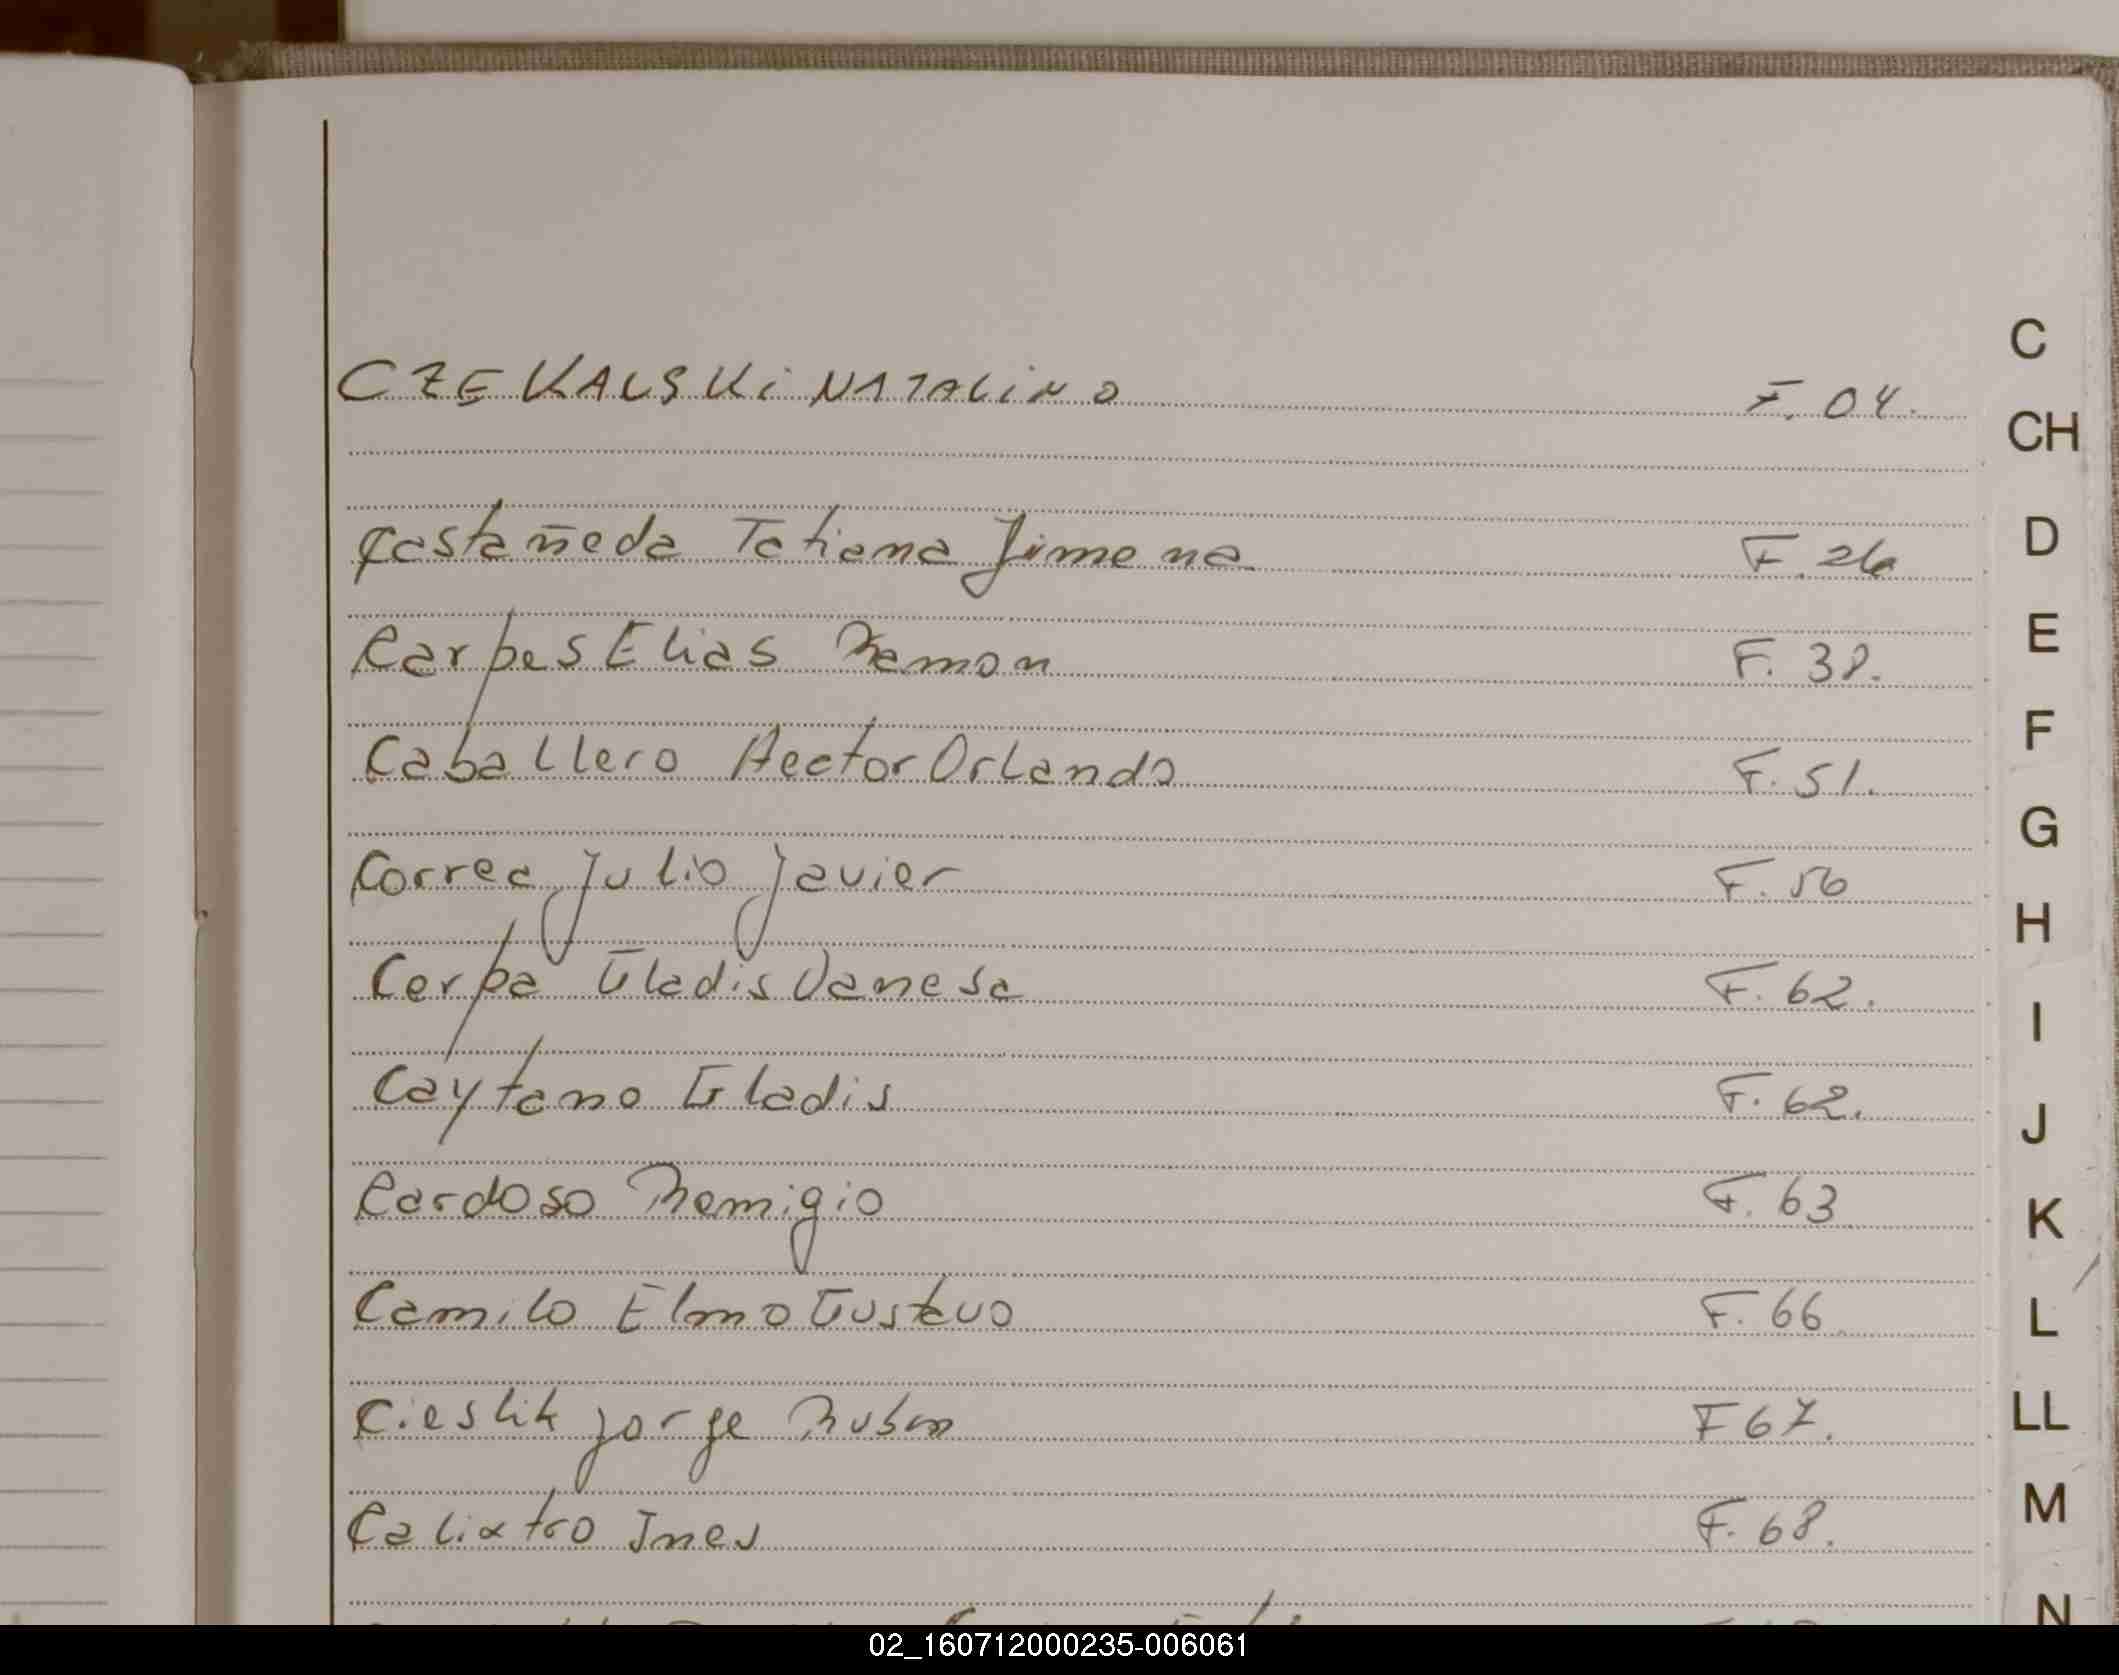 CZEKALSKI NATALINO F. 04.
Castañeda Tatiana Jimena F. 26
Carpes Elias Ramon F. 38.
Caballero Hector Orlando F. 51.
Correa Julio Javier F. 56
Cerpa Gladis Vanesa F. 62.
Caytano Gladis F. 62.
Cardoso Remigio F. 63
Camilo Elmo Gustavo F. 66
Cieslik Jorge Ruben F 67.
Calixtro Ines F. 68.
C
CH
D
E
F
G
H
I
J
K
L
LL
M
N
02_160712000235-006061